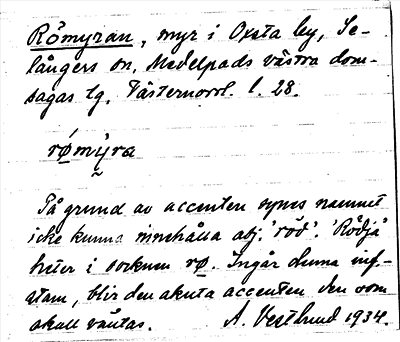 Römyran, myr i Oxsta by, Se-
långers sn, Medelpads västra dom-
sagas tg, Västernorrl. l. 28.
rømy̆ra
På grund av accenten synes namnet
icke kunna innehålla adj. 'röd'. 'Rödjä'
heter i socknen rø. Ingår denna inf.-
stam, blir den akuta accenten den som
skall väntas. A. Vestlund 1934.